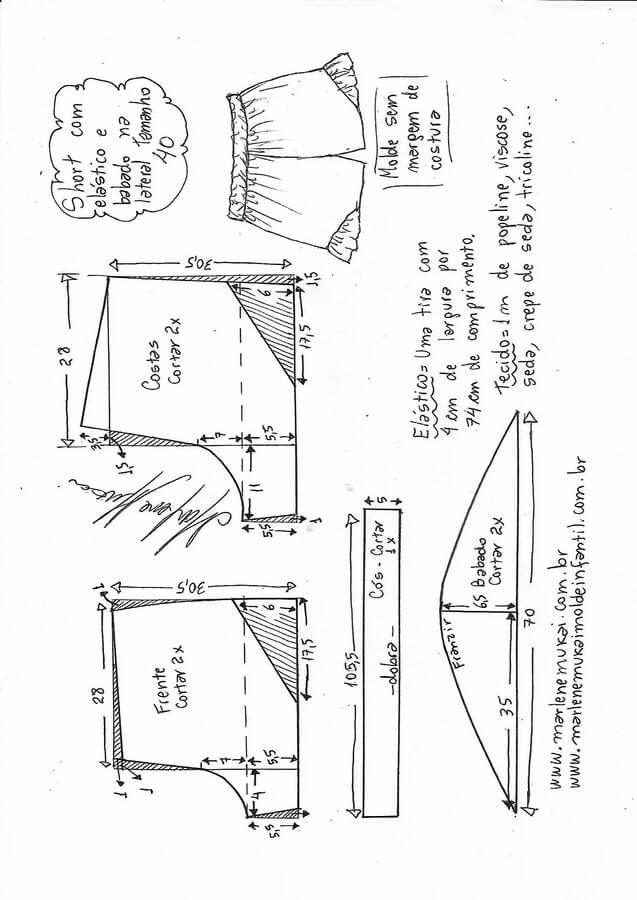 Short com
elástico e
babado na
lateral Tamanho
40
Molde sem
margem de
costura
Elástico = Uma tira com
4 cm de largura por
74 cm de comprimento.
Tecido = 1m de popeline, viscose,
seda, crepe de seda, tricoline...
30,5
28
Costas
Cortar 2x
6
1,5
17,5
3,5
1,5
7
5,5
11
5,5
1
30,5
1
28
Frente
Cortar 2x
6
17,5
1
1
7
5,5
4
5,5
105,5
5
Cós - Cortar
1x
- dobra -
Franzir
6,5
Babado
Cortar 2x
35
70
www.marlenemukai.com.br
www.marlenemukaimoldeinfantil.com.br